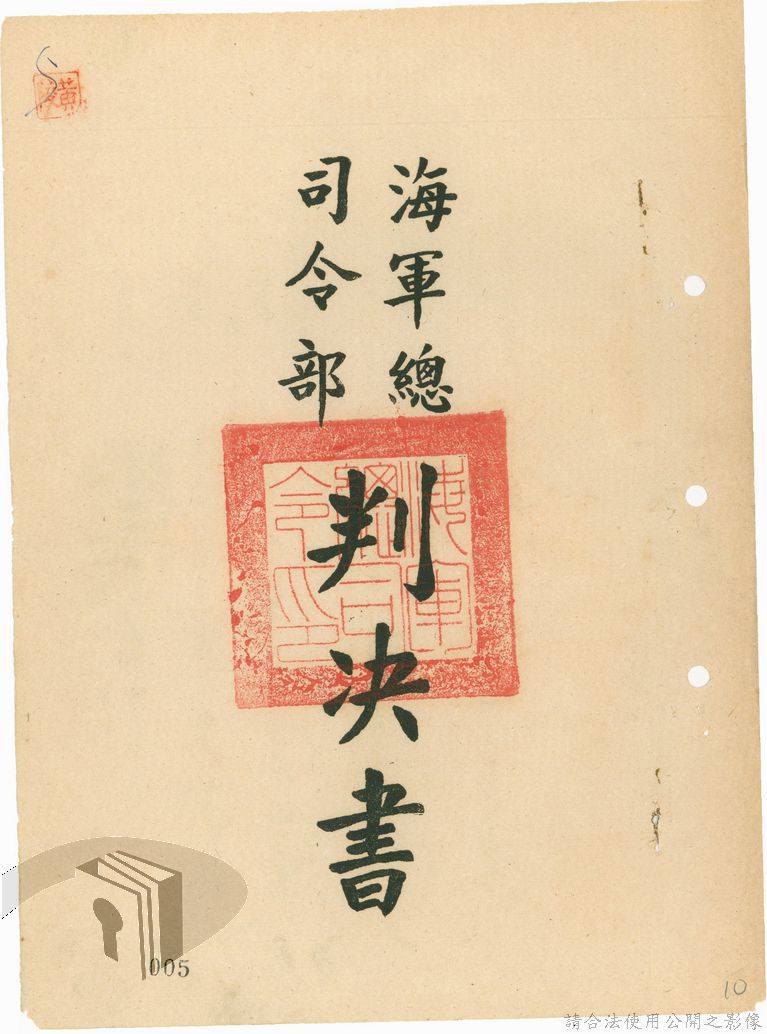 海軍總
司令部
判决書
海軍
總司
令印
黃
005
10
請合法使用公開之影像